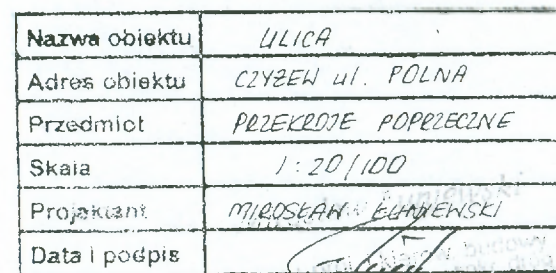 Nazwa obiektu ULICA
Adres obiektu CZYŻEW ul. POLNA
Przedmiot PRZEKROJE POPRZECZNE
Skala 1:20/100
Projektant MIROSŁAW
Data i podpis
budowy